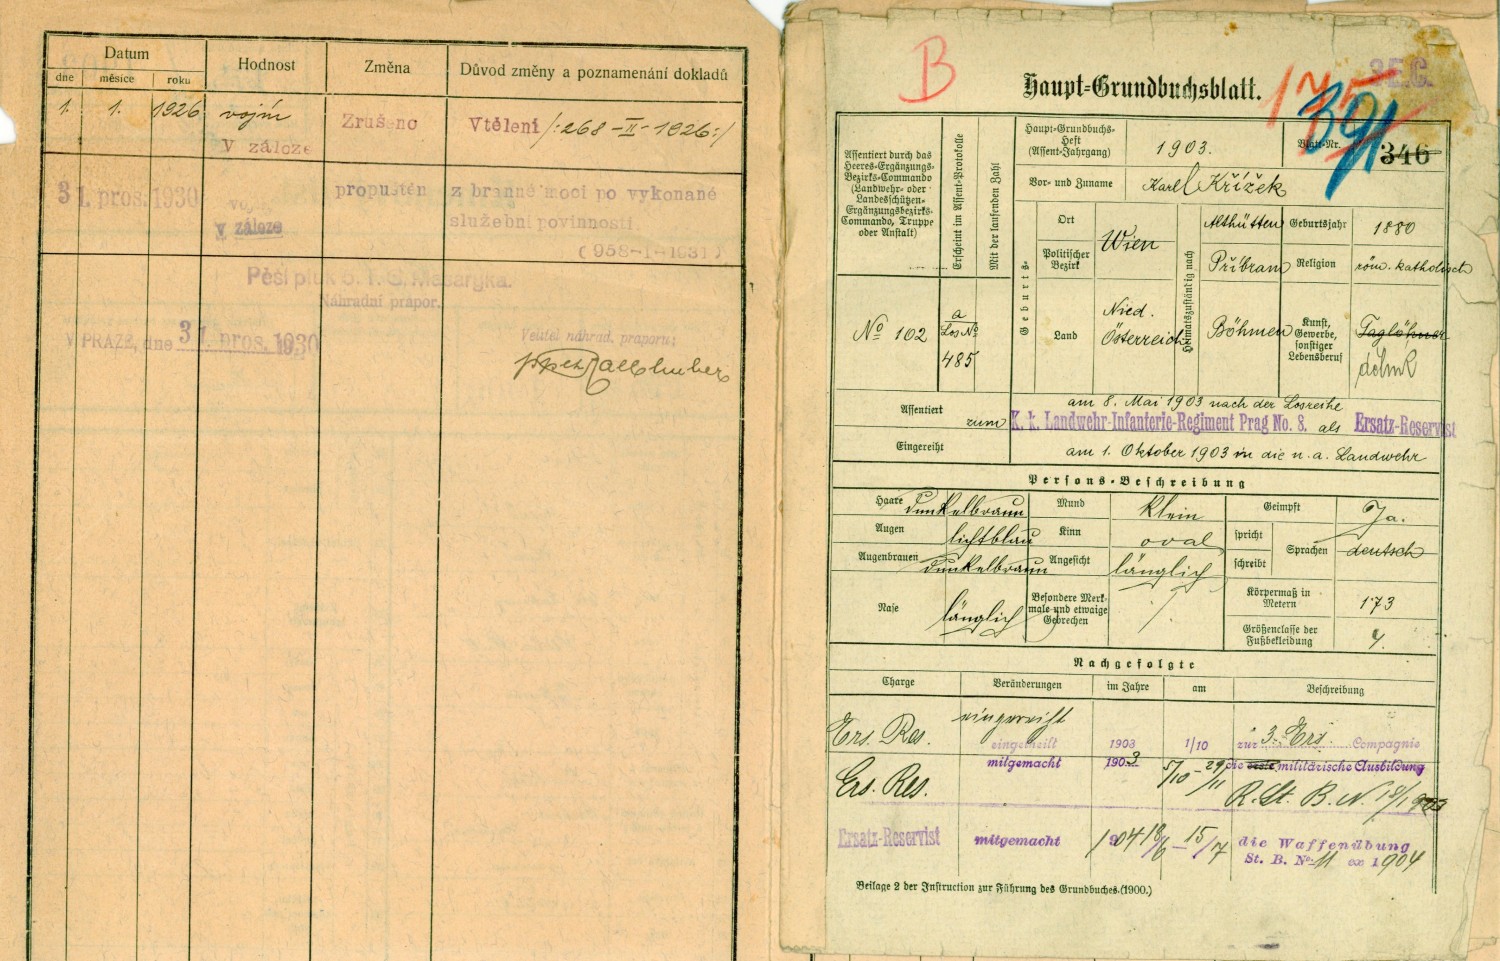 Datum
Hodnost
Změna
Důvod změny a poznamenání dokladů
dne
měsíce
roku
1. 1. 1926 vojín Zrušeno Vtělení /:268-II-1926:/
V záloze
31. pros. 1930 voj. propuštěn z branné moci po vykonané
v záloze služební povinnosti
(958-I-1931)
Pěší pluk 5. T. G. Masaryka.
Náhradní prapor.
V PRAZE, dne 31. pros. 1930
Velitel náhrad. praporu:
B
Haupt-Grundbuchsblatt.
175
391
Assentiert durch das
Heeres-Ergänzungs-
Bezirks-Commando
(Landwehr- oder
Landesschützen-
Ergänzungsbezirks-
Commando, Truppe
oder Anstalt)
Erscheint im Assent-Protokolle
Mit der laufenden Zahl
Haupt-Grundbuchs-
Heft
(Assent-Jahrgang)
1903.
Blatt-Nr.
346
Vor- und Zuname
Karl Křížek
Geburts-
Ort
Politischer
Bezirk
Wien
Land
Nied.
Österreich
Heimatszuständig nach
Althütten
Příbram
Böhmen
Geburtsjahr
1880
Religion
röm. katholisch
Kunst,
Gewerbe,
sonstiger
Lebensberuf
Taglöhner
dělník
No 102
a
Los No
485
Assentiert
am 8. Mai 1903 nach der Losreihe
zum K. k. Landwehr-Infanterie-Regiment Prag No. 8. als Ersatz-Reservist
Eingereiht
am 1. Oktober 1903 in die n. a. Landwehr
Persons-Beschreibung
Haare dunkelbraun
Mund klein
Geimpft Ja.
Augen lichtblau
Kinn oval
spricht
schreibt
Sprachen
deutsch
Augenbrauen dunkelbraun
Angesicht länglich
Nase länglich
Besondere Merk-
male und etwaige
Gebrechen
/
Körpermaß in
Metern
1.73
Größenclasse der
Fußbekleidung
Nachgefolgte
Charge
Veränderungen
im Jahre
am
Beschreibung
eingereiht
Ers. Res. eingetheilt 1903 1/10 zur 3. Ers. Compagnie
Ers. Res. mitgemacht 1903 5/10 - 29/11 die erste militärische Ausbildung
Ersatz-Reservist mitgemacht 1904 18/6 - 15/7 die Waffenübung
St. B. No 11 ex 1904
Beilage 2 der Instruction zur Führung des Grundbuches.(1900.)